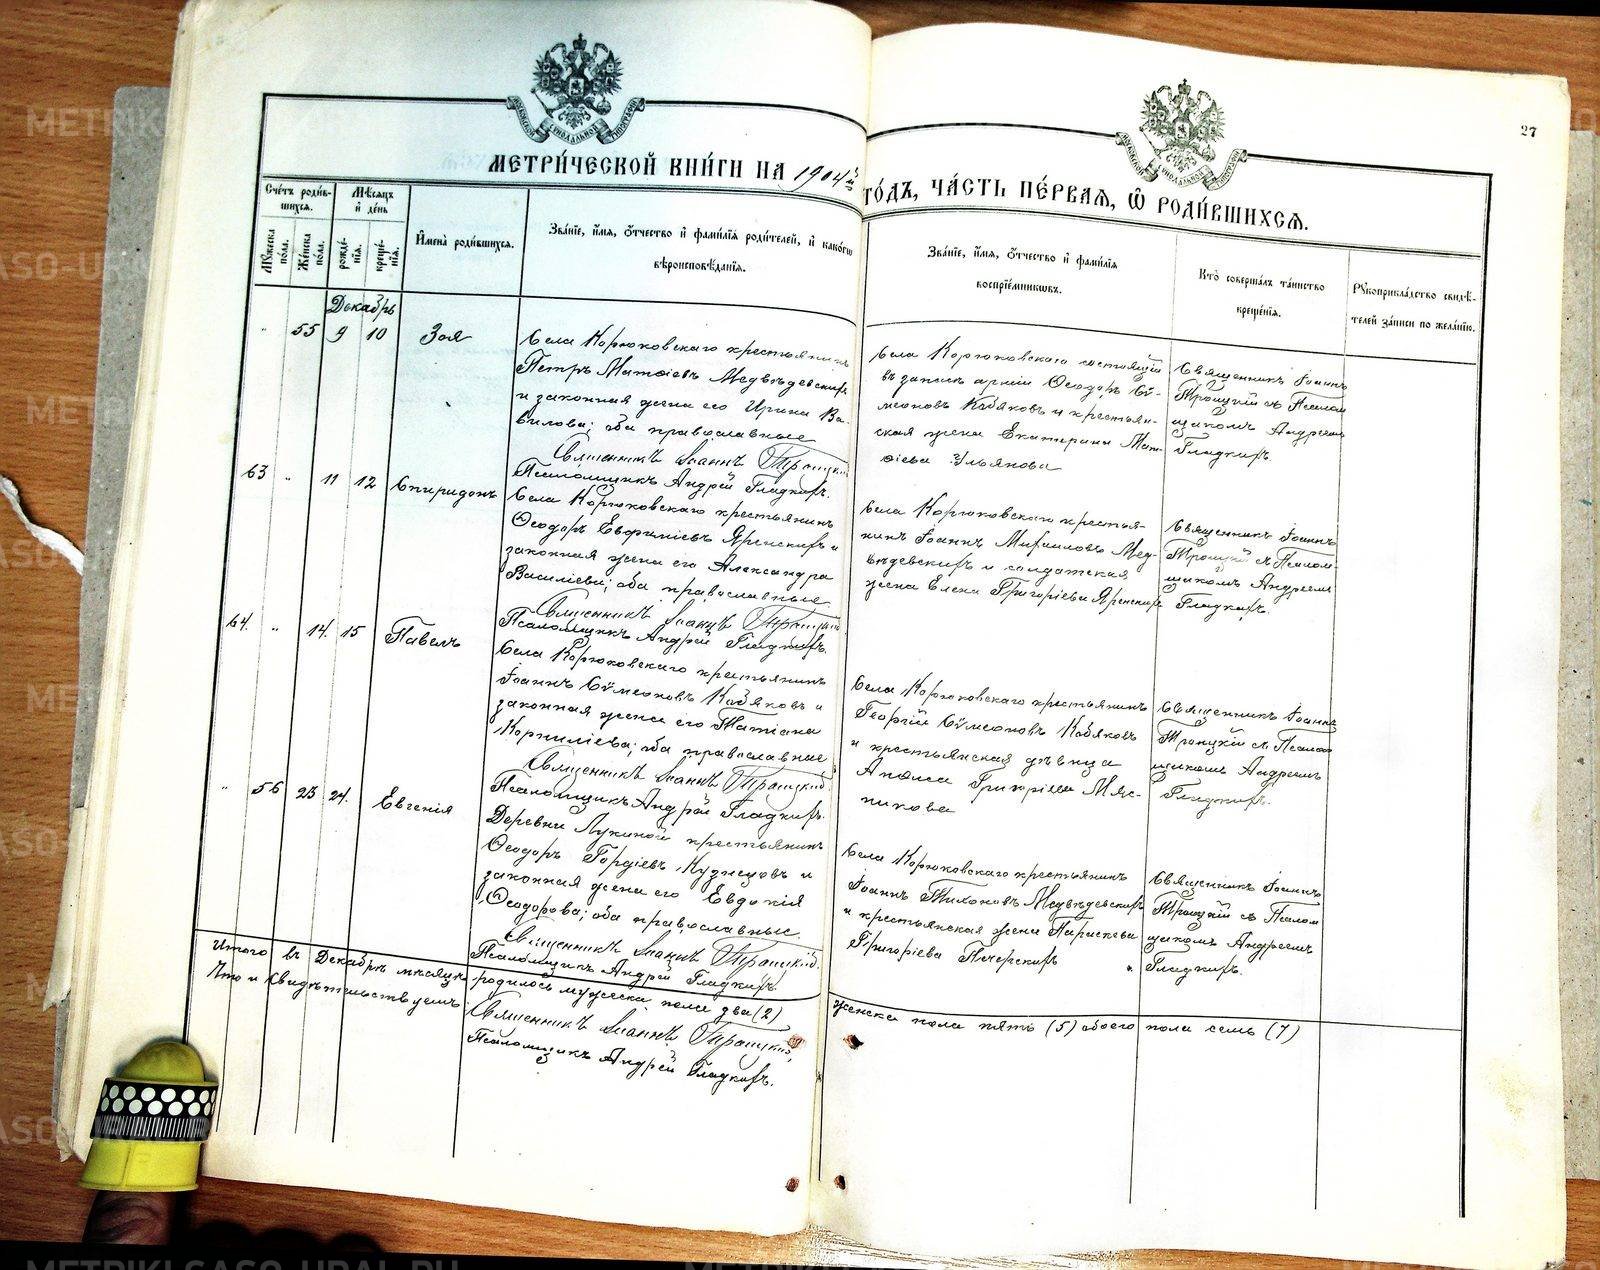 27
МЕТРИ́ЧЕСКОЙ КНИ́ГИ НА 1904й
ГО́ДЪ, ЧА́СТЬ ПЕ́РВАѦ, Ѽ РОДИ́ВШИХСѦ.
Сче́тъ роди́в-
шихсѧ.
Мꙋ́жеска по́ла.
Же́нска по́ла.
Мѣ́сѧцъ и҆ де́нь
рожде́-
нїѧ.
креще́-
нїѧ.
И҆мена̀ роди́вшихсѧ.
Зва́нїе, и҆́мѧ, ѻ҆́тчество и҆ фами́лїѧ роди́телей, и҆ како́гѡ
вѣроисповѣ́данїѧ.
Зва́нїе, и҆́мѧ, ѻ҆́тчество и҆ фами́лїѧ
воспрїе́мникѡвъ.
Кто̀ соверша́лъ та́инство
креще́нїѧ.
Рꙋкоприкла́дство свидѣ́-
телей за́писи по жела́нїю.
Декабрь
" 55 9 10 Зоя
Села Корюковскаго крестьянинъ
Петръ Матѳіевъ Медвѣдевскихъ
и законная жена его Ирина Ва-
вилова; оба православные
Священникъ Іоаннъ Троицкій
Псаломщикъ Андрей Гладкихъ.
Села Корюковскаго состоящій
въ запасѣ арміи Ѳеодоръ Сѵ-
меоновъ Кобяковъ и крестьян-
ская жена Екатерина Мат-
ѳіева Ульянова
Священникъ Іоаннъ
Троицкій съ Псалом
щикомъ Андреемъ
Гладкихъ.
63 " 11 12 Спиридонъ
Села Корюковскаго крестьянинъ
Ѳеодоръ Евфиміевъ Яренскихъ и
законная жена его Александра
Василіева; оба православные.
Священникъ Іоаннъ Троицкій
Псаломщикъ Андрей Гладкихъ.
Села Корюковскаго крестья-
нинъ Іоаннъ Михаиловъ Мед-
вѣдевскихъ и солдатская
жена Елена Григоріева Яренскихъ
Священникъ Іоаннъ
Троицкій съ Псалом-
щикомъ Андреемъ
Гладкихъ.
64. " 14. 15 Павелъ
Села Корюковскаго крестьянинъ
Іоаннъ Сѵмеоновъ Кобяковъ и
законная жена его Татіана
Корниліева; оба православные
Священникъ Іоаннъ Троицкій.
Псаломщикъ Андрей Гладкихъ.
Села Корюковскаго крестьянинъ
Георгій Сѵмеоновъ Кобяковъ
и крестьянская дѣвица
Григоріева Мяс-
никова
Священникъ Іоаннъ
Троицкій съ Псалом
щикомъ Андреемъ
Гладкихъ.
" 56 23 24. Евгенія
Деревни Лукиной крестьянинъ
Ѳеодоръ Гордіевъ Кузнецовъ и
законная жена его Евдокія
Ѳеодорова; оба православные.
Священникъ Іоаннъ Троицкій.
Псаломщикъ Андрей Гладкихъ.
Села Корюковскаго крестьянинъ
Іоаннъ Тихоновъ Медвѣдевскихъ
и крестьянская жена Параскева
Григоріева Печерскихъ
Священникъ Іоаннъ
Троицкій съ Псалом
щикомъ Андреемъ
Гладкихъ.
Итого въ Декабрѣ мѣсяцѣ родилось мужеска пола два (2) женска пола пять (5) обоего пола семь (7)
Что и свидѣтельствуемъ:
Священникъ Іоаннъ Троицкій,
Псаломщикъ Андрей Гладкихъ.